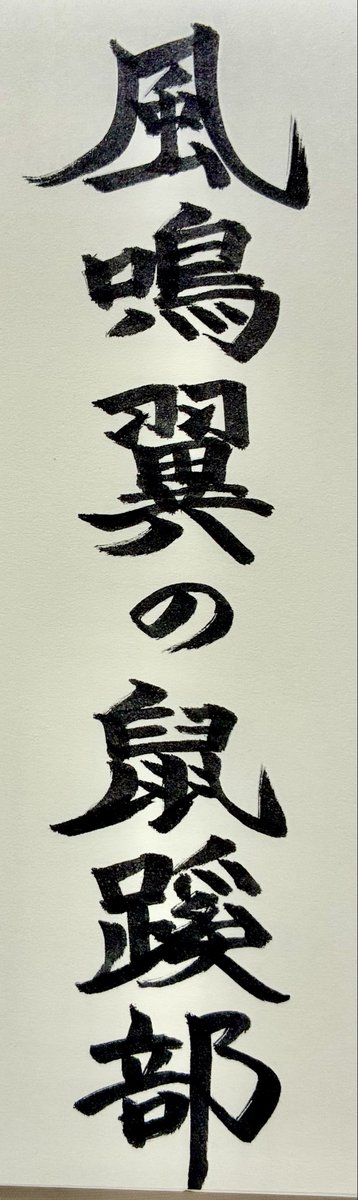 風鳴翼の鼠蹊部